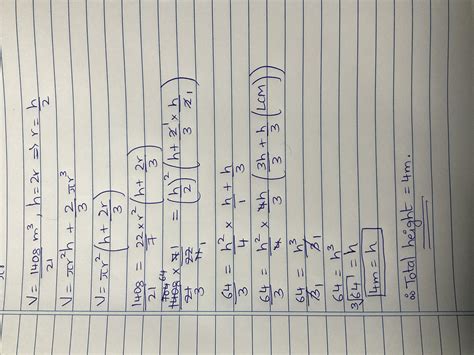 V = 1408/21 m³, h = 2r ⇒ r = h/2
V = πr²h + 2/3 πr³
V = πr² (h + 2r/3)
1408/21 = 22/7 × r² (h + 2r/3)
1408/21 × 7/22 = (h/2)² (h + 2/3 × h/2)
64/3 = h²/4 × h/1 + h/3
64/3 = h²/4 × (3h + h)/3 (LCM)
64/3 = h² × 4h / 4 3
64/3 = h³/3
64 = h³
∛64 = h
4m = h
∴ Total height = 4m.